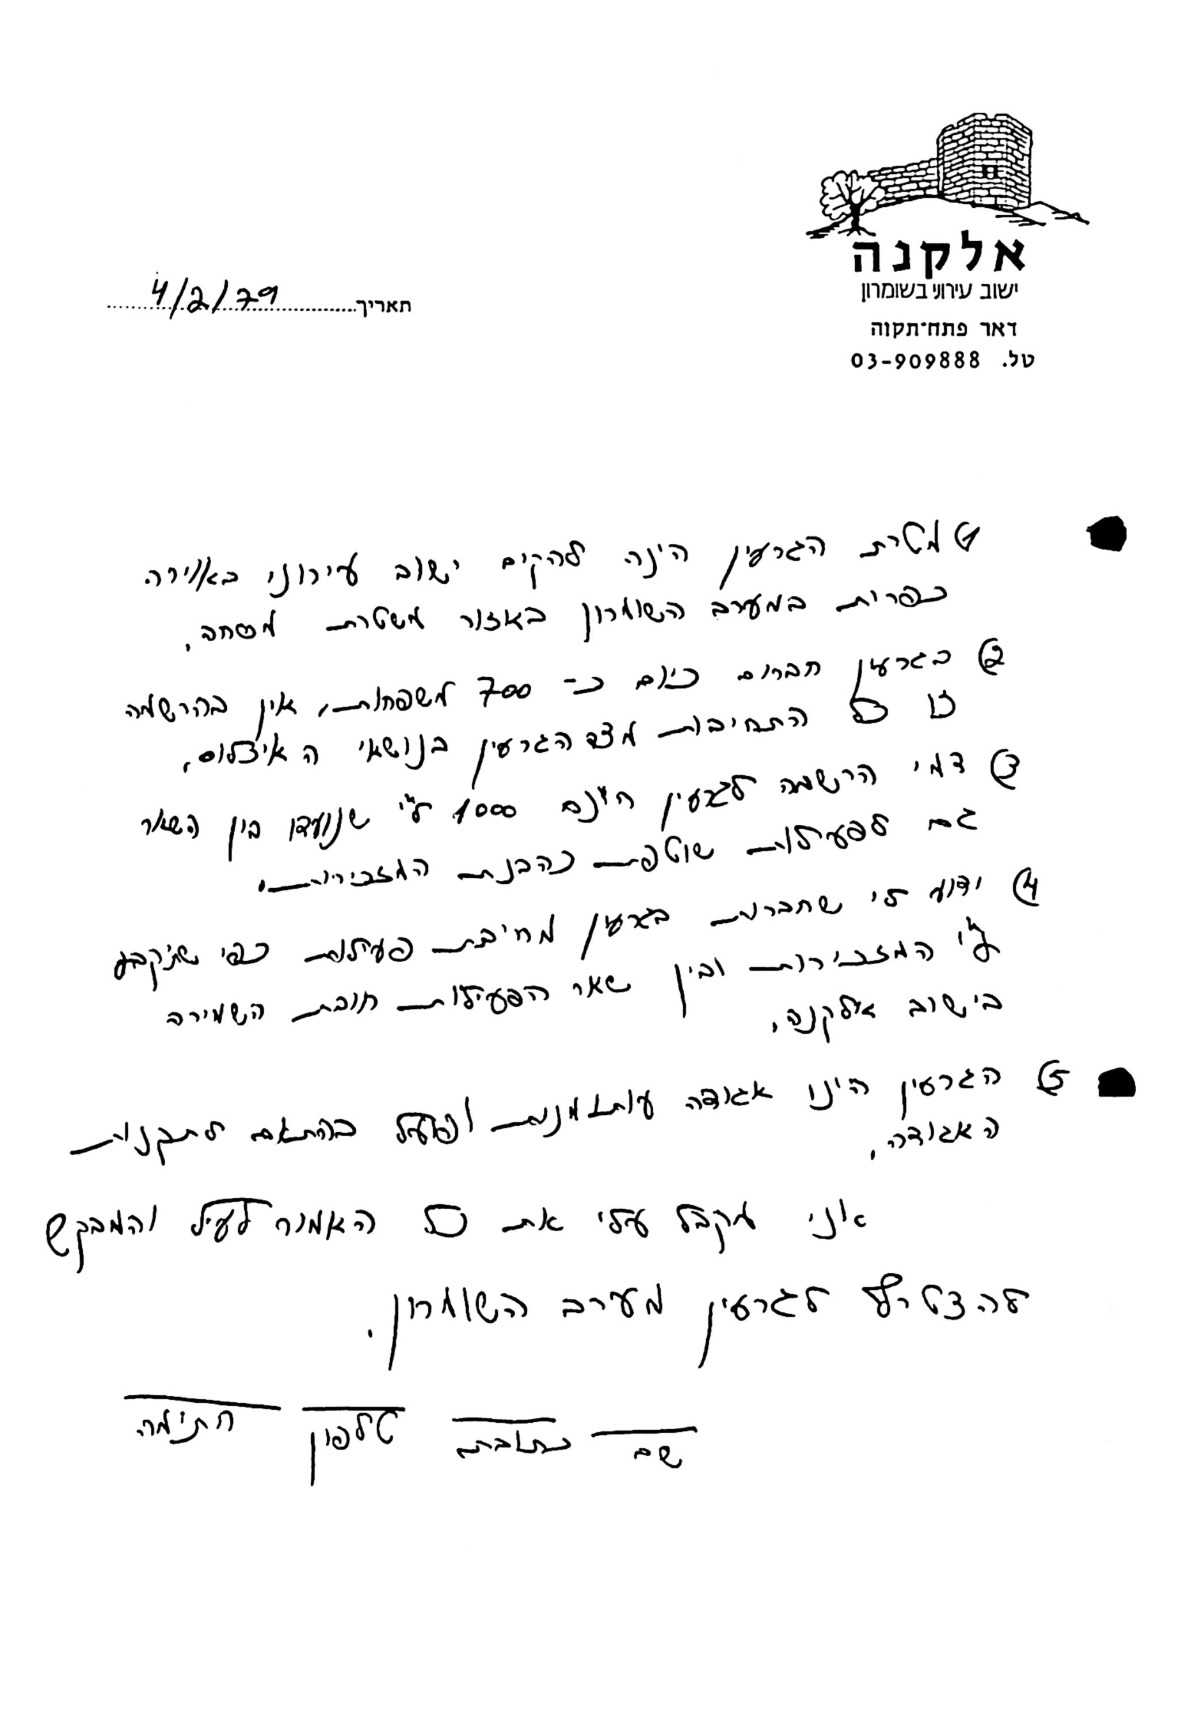 אלקנה
ישוב עירוני בשומרון
דאר פתח־תקוה
טל. 03-909888
תאריך 4/2/79
1) מטרת הגרעין הינה להקים ישוב עירוני באוירה
כפרית במערב השומרון באזור משטרת מסחה.
2) בגרעין חברים כיום כ- 700 משפחות, אין בהרשמה
זו כל התחיבות מצד הגרעין בנושאי האיכלוס.
3) דמי הרשמה לגרעין הינם 1000 ל"י שנועדו בין השאר
גם לפעילות שוטפת כהבנת המזכירות.
4) ידוע לי שחברות בגרעין מחיבת פעילות כפי שתיקבע
ע"י המזכירות ובין שאר הפעילות חובת השמירה
בישוב אלקנה.
5) הגרעין הינו אגודה עותומנית ופועל בהתאם לתקנות
האגודה.
אני מקבל עלי את כל האמור לעיל והמבקש
להצטרף לגרעין מערב השומרון.
שם כתובת טלפון חתימה